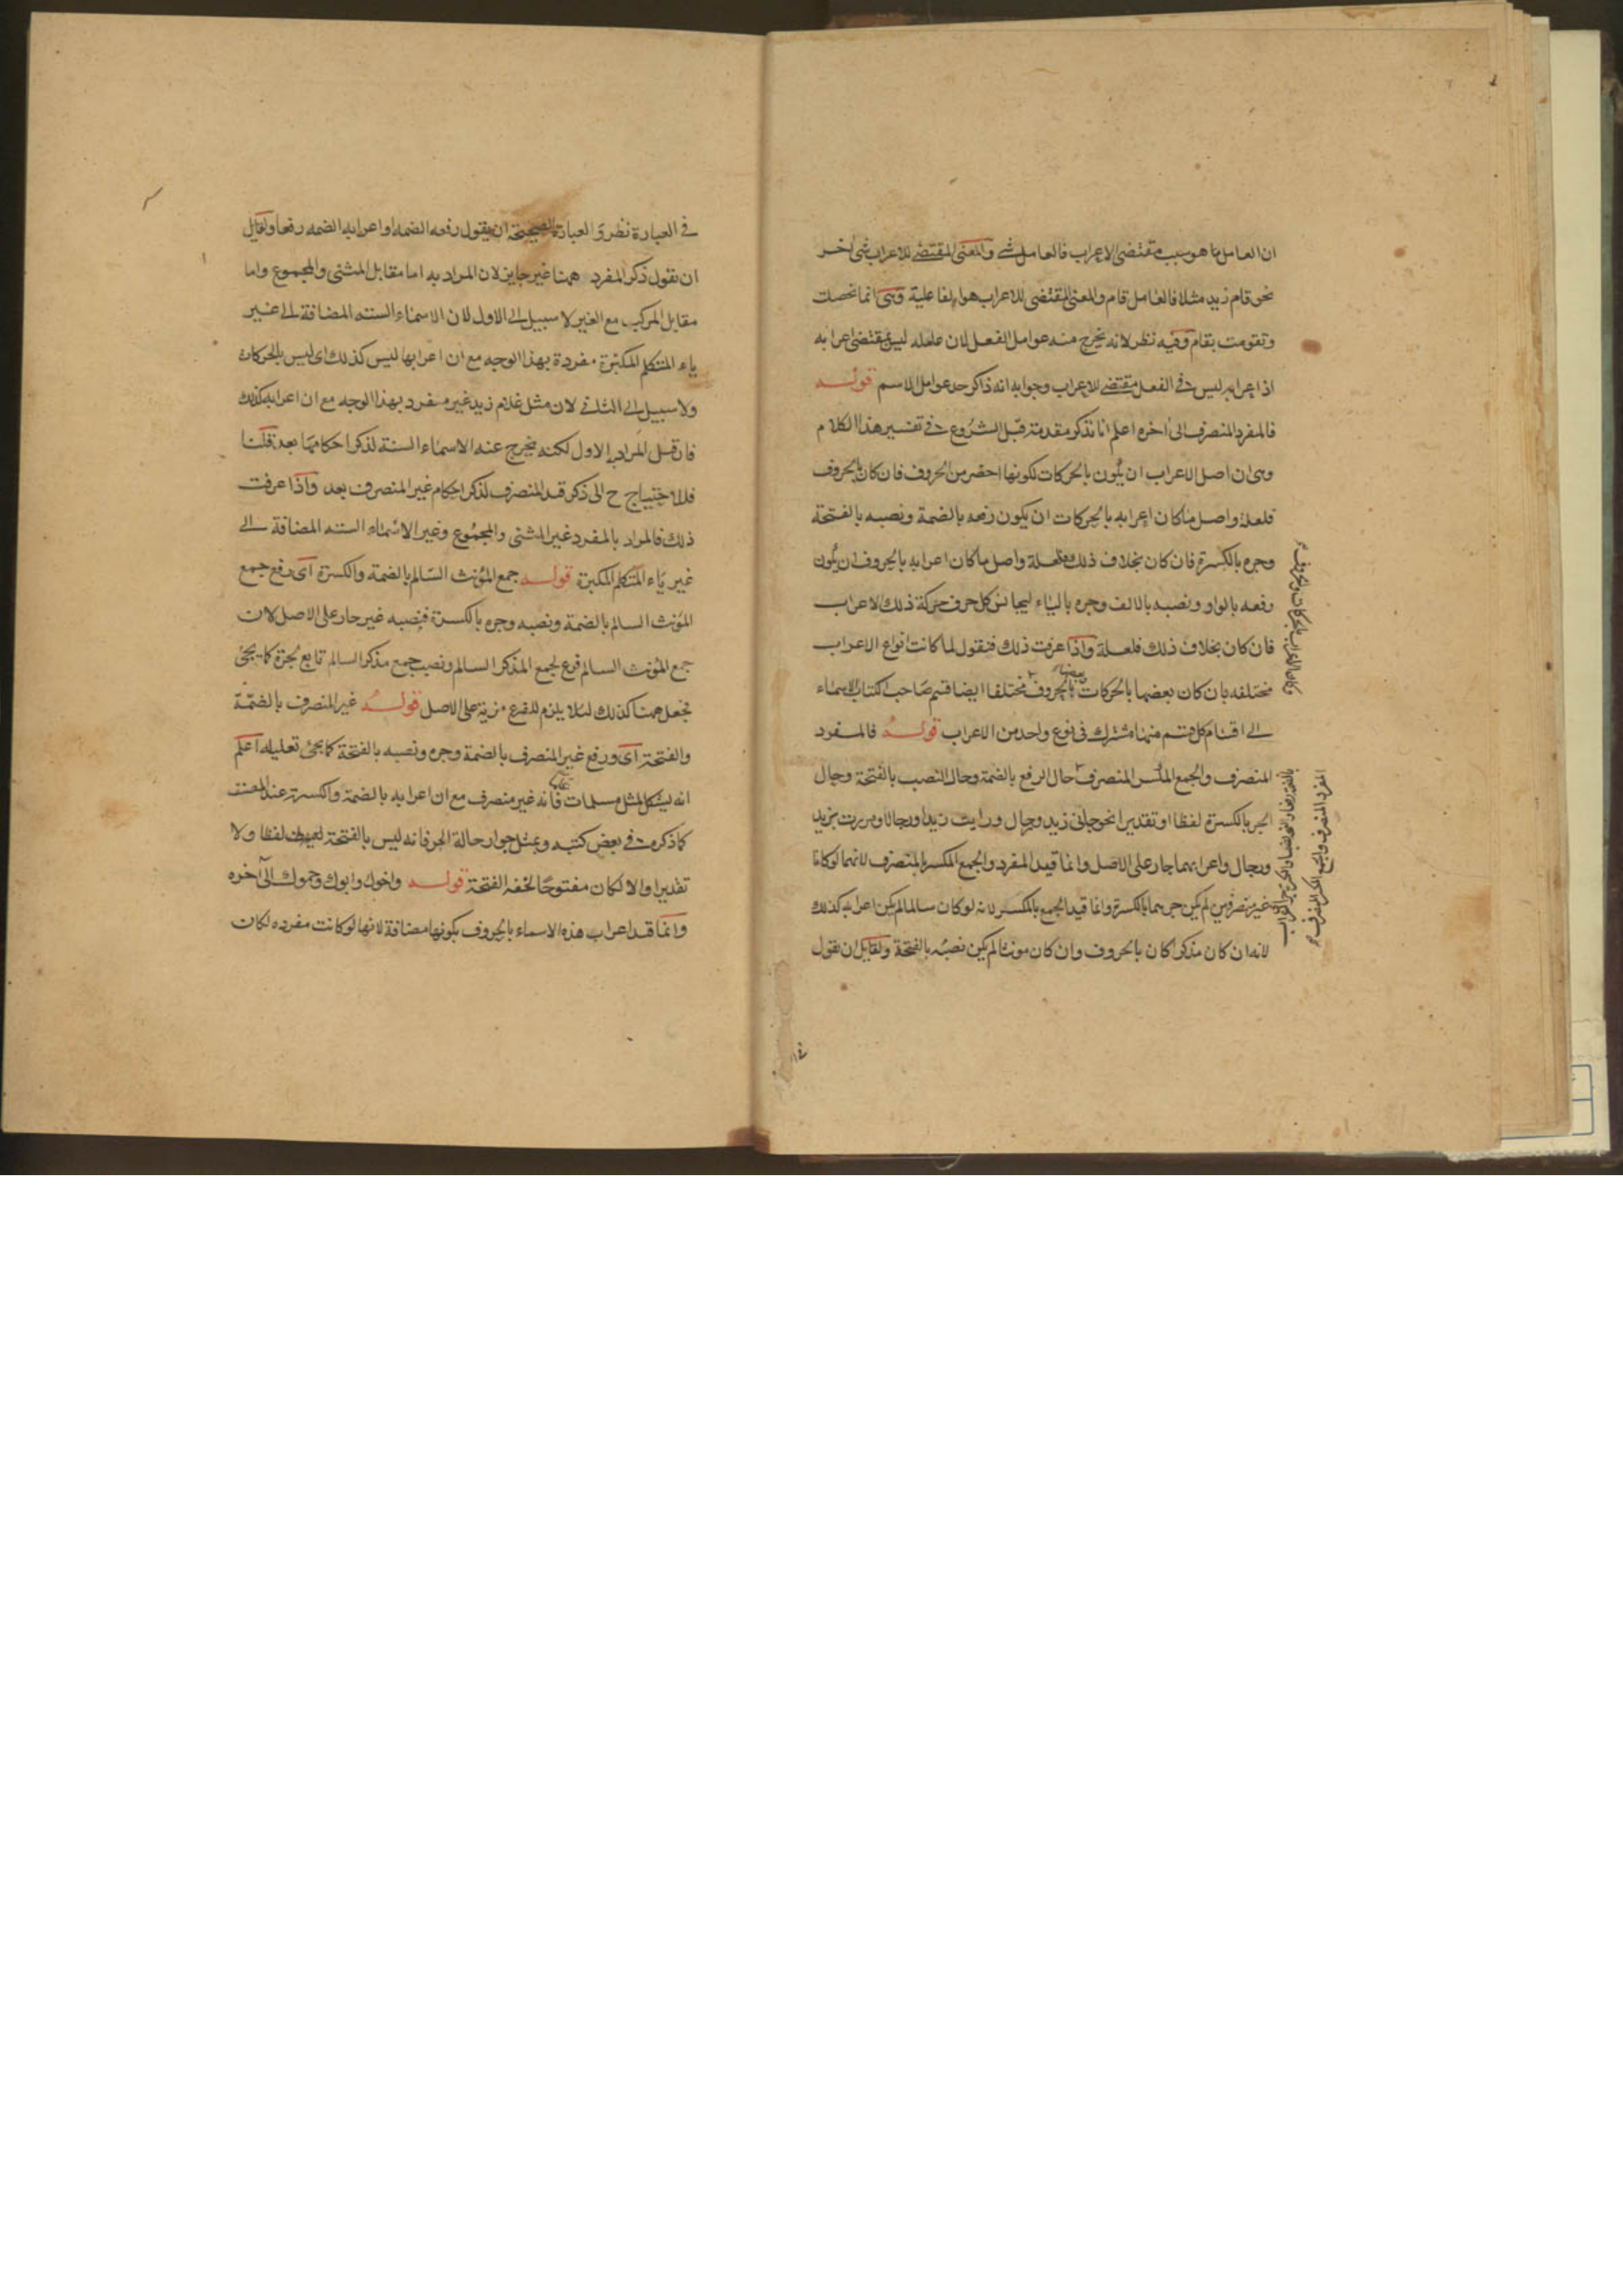 ان العامل ما هو سبب مقتضى الاعراب فالعامل شئ والمعنى المقتضى للاعراب شئ اخر
نحو قام زيد مثلا فالعامل قام والمعنى المقتضى للاعراب هو الفاعلية وهى انما تحصلت
وتقومت بقام وفيه نظر لانه يخرج منه عوامل الفعل لان عامله ليس بمقتضى اعرابه
اذ اعرابه ليس فى الفعل مقتضى للاعراب وجوابه انه ذاكر حد عوامل الاسم قوله
فالمفرد المنصرف الى اخره اعلم انا نذكر مقدمة قبل الشروع فى تفسير هذا الكلام
وهى ان اصل الاعراب ان يكون بالحركات لكونها اخصر من الحروف فان كان بالحروف
فلعلة واصل ما كان اعرابه بالحركات ان يكون رفعه بالضمة ونصبه بالفتحة
وجره بالكسرة فان كان بخلاف ذلك فلعلة واصل ما كان اعرابه بالحروف ان يكون
رفعه بالواو ونصبه بالالف وجره بالياء ليجانس كل حرف حركة ذلك الاعراب
فان كان بخلاف ذلك فلعلة واذا عرفت ذلك فنقول لما كانت انواع الاعراب
مختلفه بان كان بعضها بالحركات وبعضها بالحروف مختلفا ايضا قسم صاحب الكتاب الاسماء
الى اقسام كل قسم منها مشترك فى نوع واحد من الاعراب قوله فالمفرد
المنصرف والجمع المكسر المنصرف حال الرفع بالضمة وحال النصب بالفتحة وحال
الجر بالكسرة لفظا او تقديرا نحو جاءنى زيد ورجال ورايت زيدا ورجالا ومررت بزيد
ورجال واعرابهما جار على الاصل وانما قيد المفرد والجمع المكسر بالمنصرف لانهما لو كانا
غير منصرفين لم يكن جرهما بالكسرة وانما قيد الجمع بالمكسر لانه لو كان سالما لم يكن اعرابه كذلك
لانه ان كان مذكرا كان بالحروف وان كان مونثا لم يكن نصبه بالفتحة ولقايل ان يقول
المفرد المنصرف والجمع المكسر المنصرف
فى العبارة نظر و العبارة الصحيحة ان يقول رفعه الضمه او اعرابه الضمه رفعا ولقايل
ان نقول ذكر المفرد ههنا غير جايز لان المراد به اما مقابل المثنى والمجموع واما
مقابل المركب مع الغير لا سبيل الى الاول لان الاسماء الستة المضافة الى غير
ياء المتكلم المكبرة مفردة بهذا الوجه مع ان اعرابها ليس كذلك اى ليس بالحركات
ولا سبيل الى الثانى لان مثل غلام زيد غير مفرد بهذا الوجه مع ان اعرابه كذلك
فان قيل المراد به الاول لكنه يخرج عنه الاسماء الستة لذكر احكامها بعد قلنا
فلا احتياج ح الى ذكر قيد المنصرف لذكر احكام غير المنصرف بعد واذا عرفت
ذلك فالمراد بالمفرد غير المثنى والمجموع وغير الاسماء الستة المضافة الى
غير ياء المتكلم المكبرة قوله جمع المؤنث السالم بالضمة والكسرة اى رفع جمع
المؤنث السالم بالضمة ونصبه وجره بالكسرة فنصبه غير جار على الاصل لان
جمع المؤنث السالم فرع لجمع المذكر السالم ونصب جمع مذكر السالم تابع لجره كما يجئ
فجعل ههنا كذلك لئلا يلزم للفرع مزية على الاصل قوله غير المنصرف بالضمة
والفتحة اى ورفع غير المنصرف بالضمة وجره ونصبه بالفتحة كما يجئ تعليله اعلم
انه ليشكل بمثل مسلمات فانه غير منصرف مع ان اعرابه بالضمة والكسرة عند المصنف
كما ذكره فى بعض كتبه وبمثل جوار حالة الجر فانه ليس بالفتحة لفظا ولا
تقديرا والا لكان مفتوحا لخفة الفتحة قوله واخوك وابوك وحموك الى آخره
وانما قيد اعراب هذه الاسماء بالحروف بكونها مضافة لانها لو كانت مفرده لكان